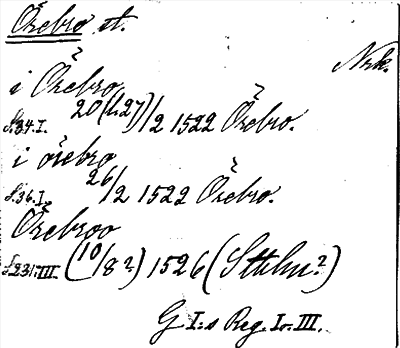 Örebro st.
Nrk.
i Örebro
s.34.I. 20(l.27)/2 1522 Örebro.
i örebro
s.36.I. 26/2 1522 Örebro.
Örebroo
s.231.III (10/8?) 1526 (Sthlm?)
G I:s Reg. I o. III.